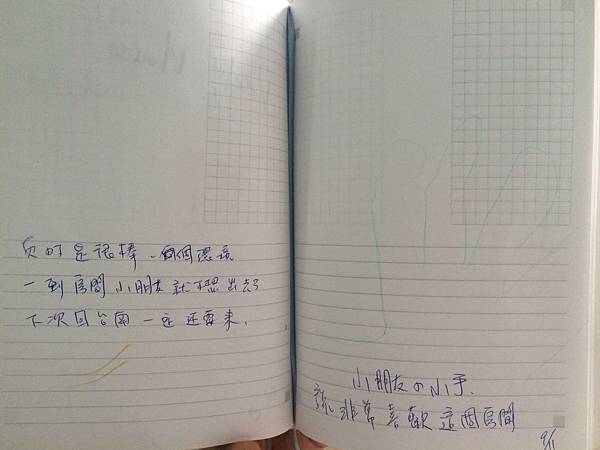 真的是很棒 一個環境
一到房間小朋友就不想出去了
下次回台南一定还要來.
小朋友の小手.
說非常喜歡這個房間